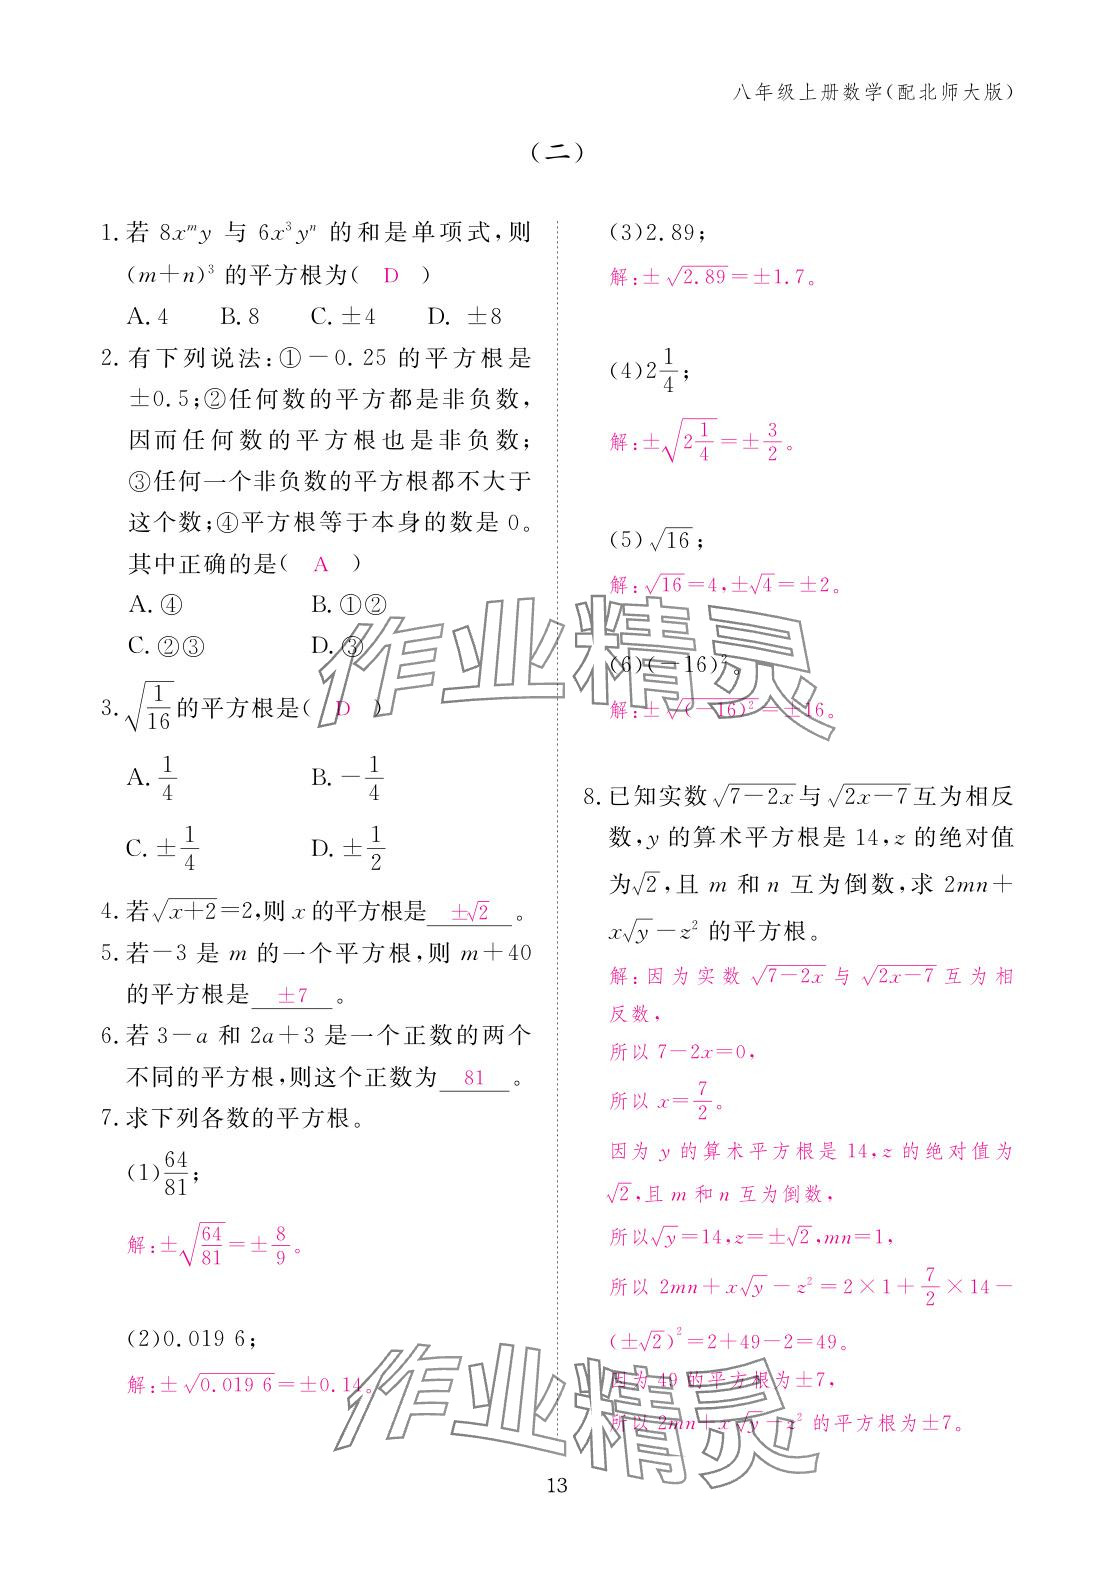 八年级上册数学(配北师大版)
(二)
1. 若 8xᵐy 与 6x³yⁿ 的和是单项式,则
(m+n)³ 的平方根为( D )
A. 4 B. 8 C. ±4 D. ±8
2. 有下列说法:①-0.25 的平方根是
±0.5;②任何数的平方都是非负数,
因而任何数的平方根也是非负数;
③任何一个非负数的平方根都不大于
这个数;④平方根等于本身的数是 0。
其中正确的是( A )
A. ④ B. ①②
C. ②③ D. ③
3. √(1/16)的平方根是( D )
A. 1/4 B. -1/4
C. ±1/4 D. ±1/2
4. 若√(x+2)=2,则 x 的平方根是 ±√2 。
5. 若-3 是 m 的一个平方根,则 m+40
的平方根是 ±7 。
6. 若 3-a 和 2a+3 是一个正数的两个
不同的平方根,则这个正数为 81 。
7. 求下列各数的平方根。
(1)64/81;
解:±√(64/81)=±8/9。
(2)0.019 6;
解:±√(0.019 6)=±0.14。
(3)2.89;
解:±√(2.89)=±1.7。
(4)2 1/4;
解:±√(2 1/4)=±3/2。
(5)√16;
解:√16=4,±√4=±2。
(6)(-16)²。
解:±√((-16)²)=±16。
8. 已知实数√(7-2x)与√(2x-7)互为相反
数,y 的算术平方根是 14,z 的绝对值
为√2,且 m 和 n 互为倒数,求 2mn+
x√y-z² 的平方根。
解:因为实数 √(7-2x) 与 √(2x-7) 互为相
反数,
所以 7-2x=0,
所以 x=7/2。
因为 y 的算术平方根是 14,z 的绝对值为
√2,且 m 和 n 互为倒数,
所以√y=14,z=±√2,mn=1,
所以 2mn+x√y-z²=2×1+7/2×14-
(±√2)²=2+49-2=49。
因为 49 的平方根为±7,
所以 2mn+x√y-z² 的平方根为±7。
作业精灵
作业精灵
13